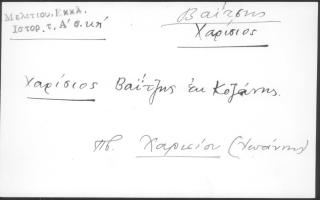 Μελετίου, Εκκλ.
Ιστορ. τ. Α΄ σ. κη΄
Βαΐτσης
Χαρίσιος
Χαρίσιος Βαΐτζης εκ Κοζάνης.
Πβ. Χαρισίου